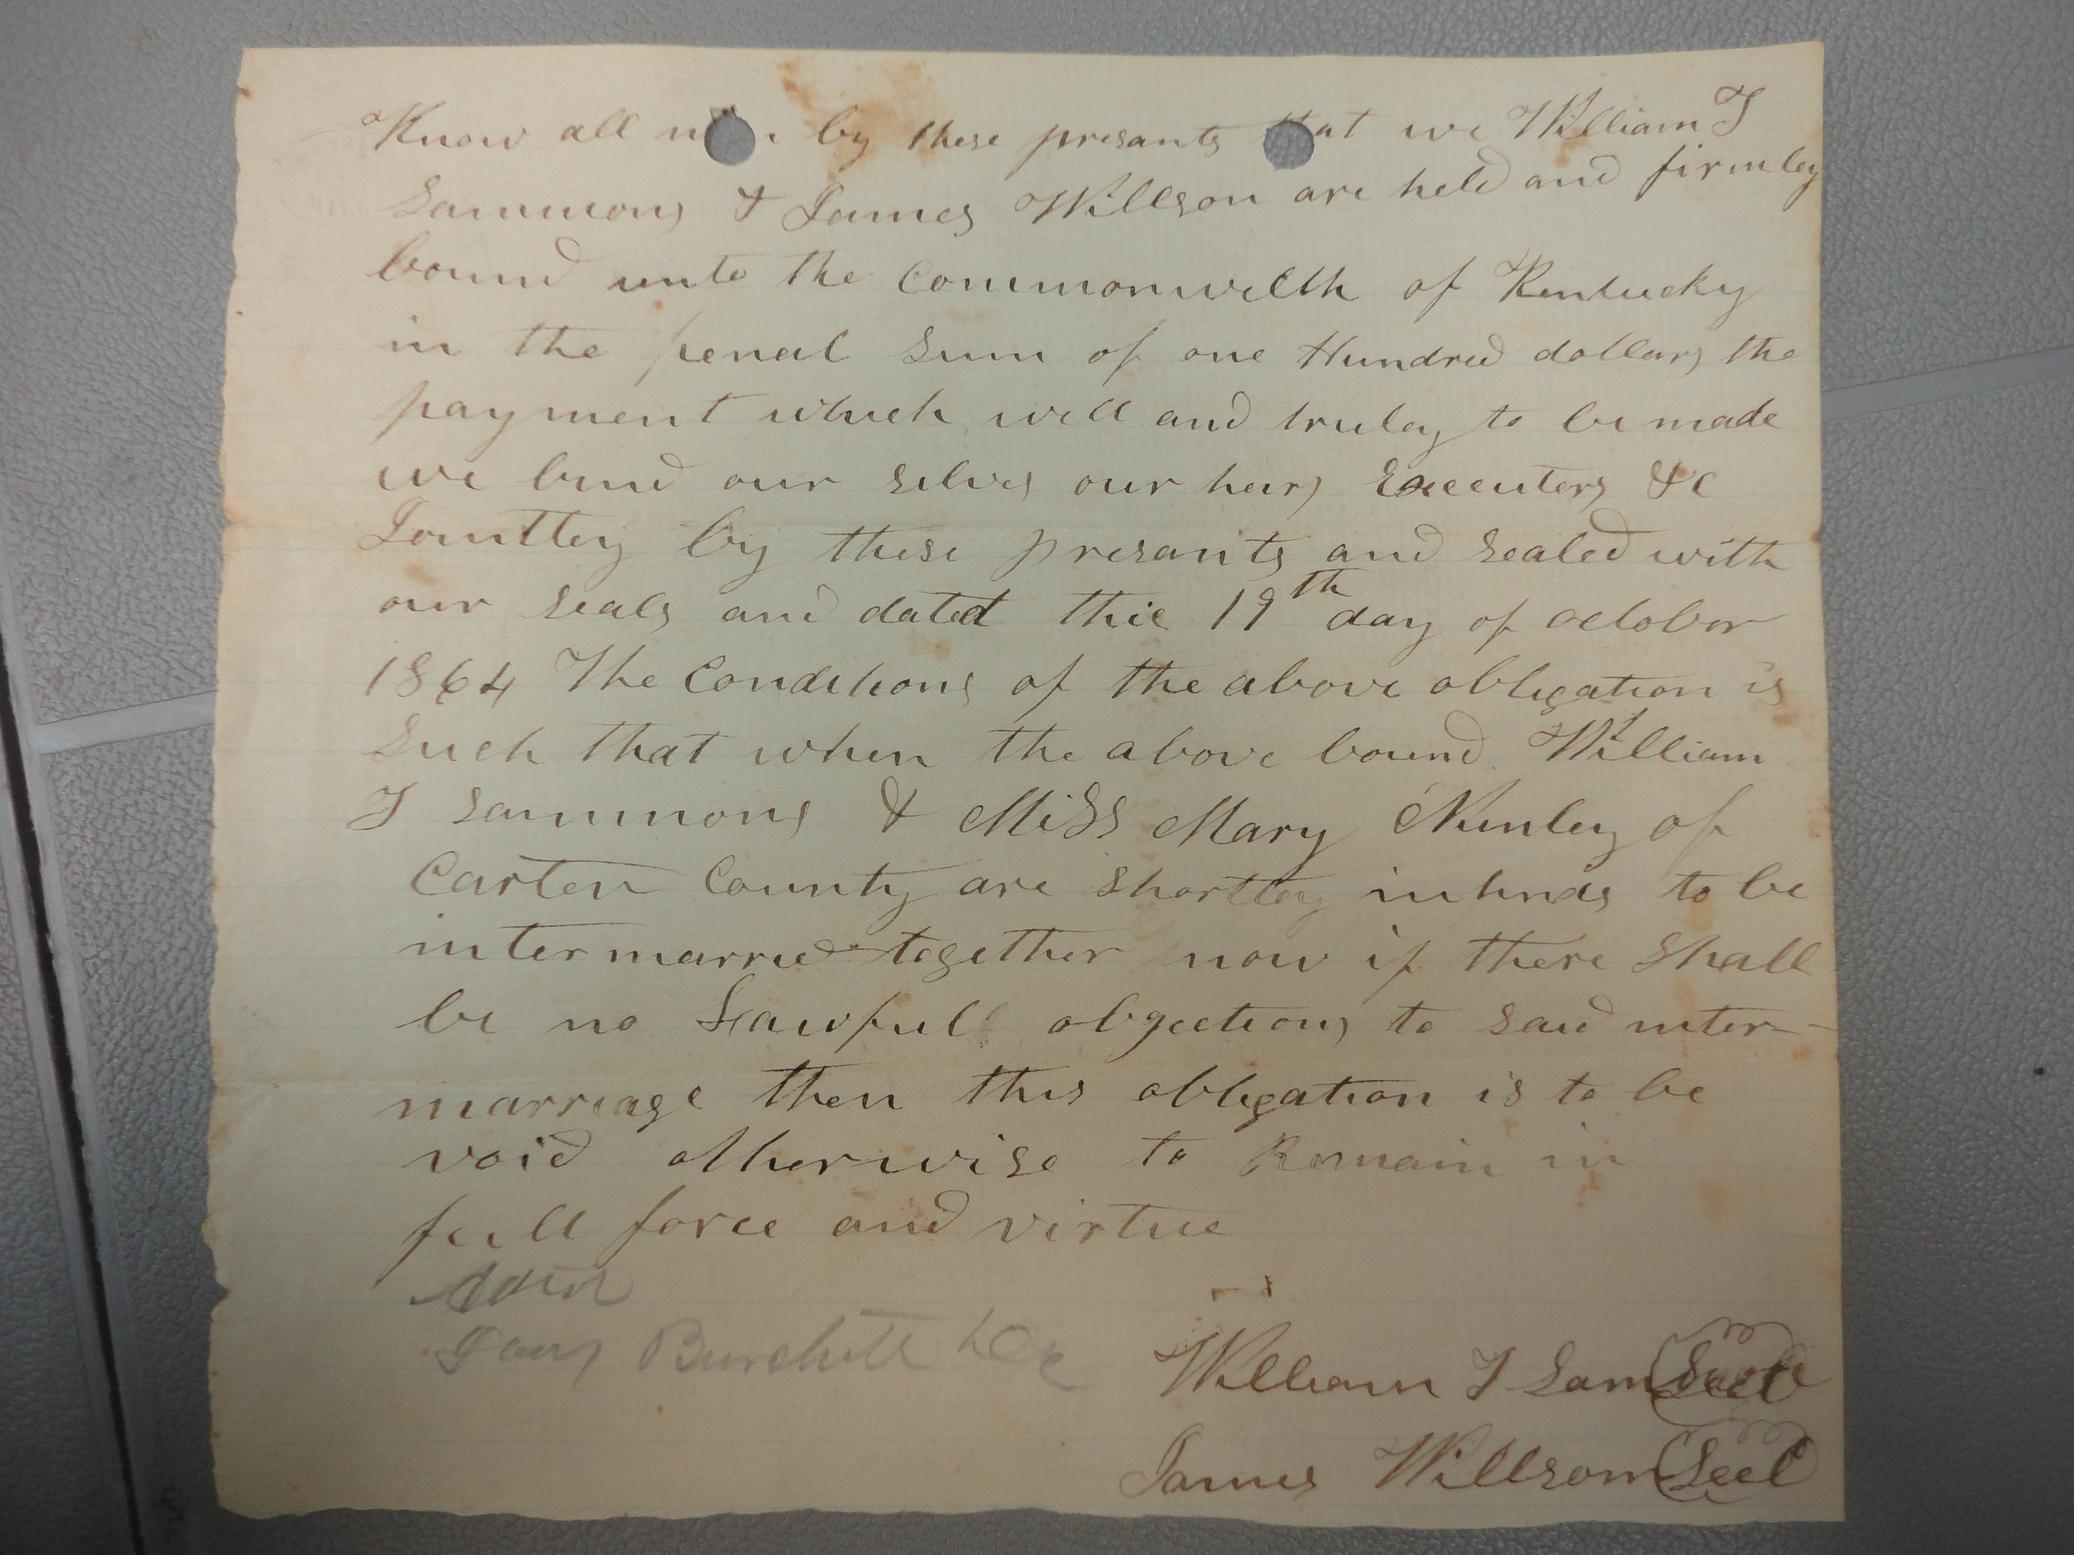 Know all men by these presants that we William T
Sammons & James Willson are held and firmley
bound unto the Commonwelth of Kentucky
in the penal Sum of one Hundred dollars the
payment which well and truley to be made
we bind our selves our heirs Executers &c
Jointley by these presants and sealed with
our seals and dated this 19th day of october
1864 The Conditions of the above obligation is
Such that when the above bound William
T Sammons & Miss Mary of
Carter County are Shortley intends to be
intermarried together now if there Shall
be no Lawfull objections to said inter-
marriage then this obligation is to be
void otherwise to Remain in
full force and virtue
Burchett
William T Sam Seel
James Willson Seel